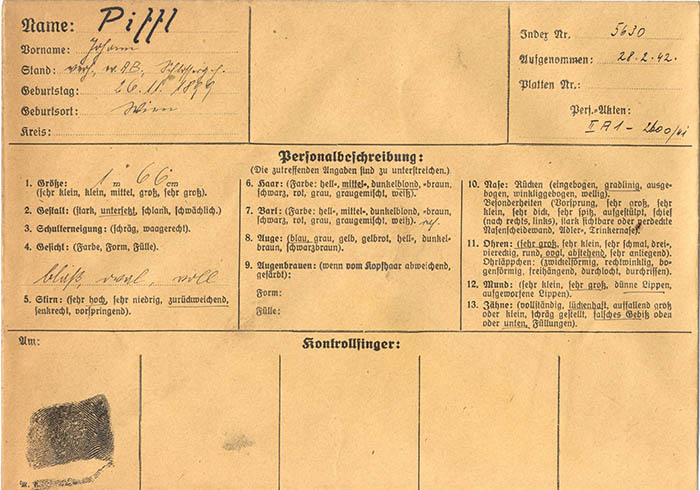 Name: Piffl
Vorname: Johann
Stand: verh., r.k. AB., Schlosserg.
Geburtstag: 26.11.1899
Geburtsort: Wien
Kreis:
Index Nr. 5630
Aufgenommen: 28.2.42.
Platten Nr.:
Pers.-Akten:
II A 1 - 200/41
Personalbeschreibung:
(Die zutreffenden Angaben sind zu unterstreichen.)
1. Größe: 1 m 66 cm
(sehr klein, klein, mittel, groß, sehr groß).
2. Gestalt: (stark, untersetzt, schlank, schwächlich).
3. Schulterneigung: (schräg, waagerecht).
4. Gesicht: (Farbe, Form, Fülle).
blaß, oval, voll
5. Stirn: (sehr hoch, sehr niedrig, zurückweichend,
senkrecht, vorspringend).
6. Haar: (Farbe: hell-, mittel-, dunkelblond, -braun,
schwarz, rot, grau, graugemischt, weiß).
7. Bart: (Farbe: hell-, mittel-, dunkelblond, -braun,
schwarz, rot, grau, graugemischt, weiß).
8. Auge: (blau, grau, gelb, gelbrot, hell-, dunkel-
braun, schwarzbraun).
9. Augenbrauen: (wenn vom Kopfhaar abweichend,
gefärbt):
Form:
Fülle:
10. Nase: Rücken (eingebogen, gradlinig, ausge-
bogen, winkliggebogen, wellig).
Besonderheiten (Vorsprung, sehr groß, sehr
klein, sehr dick, sehr spitz, aufgestülpt, schief
(nach rechts, links), stark sichtbare oder verdeckte
Nasenscheidewand, Adler-, Trinkernase).
11. Ohren: (sehr groß, sehr klein, sehr schmal, drei-,
viereckig, rund, oval, abstehend, sehr anliegend).
Ohrläppchen: (zwickelförmig, rechtwinklig, bo-
genförmig, freihängend, durchlocht, durchrissen).
12. Mund: (sehr klein, sehr groß, dünne Lippen,
aufgeworfene Lippen).
13. Zähne: (vollständig, lückenhaft, auffallend groß
oder klein, schräg gestellt, falsches Gebiß oben
oder unten, Füllungen).
Am:
Kontrollfinger: